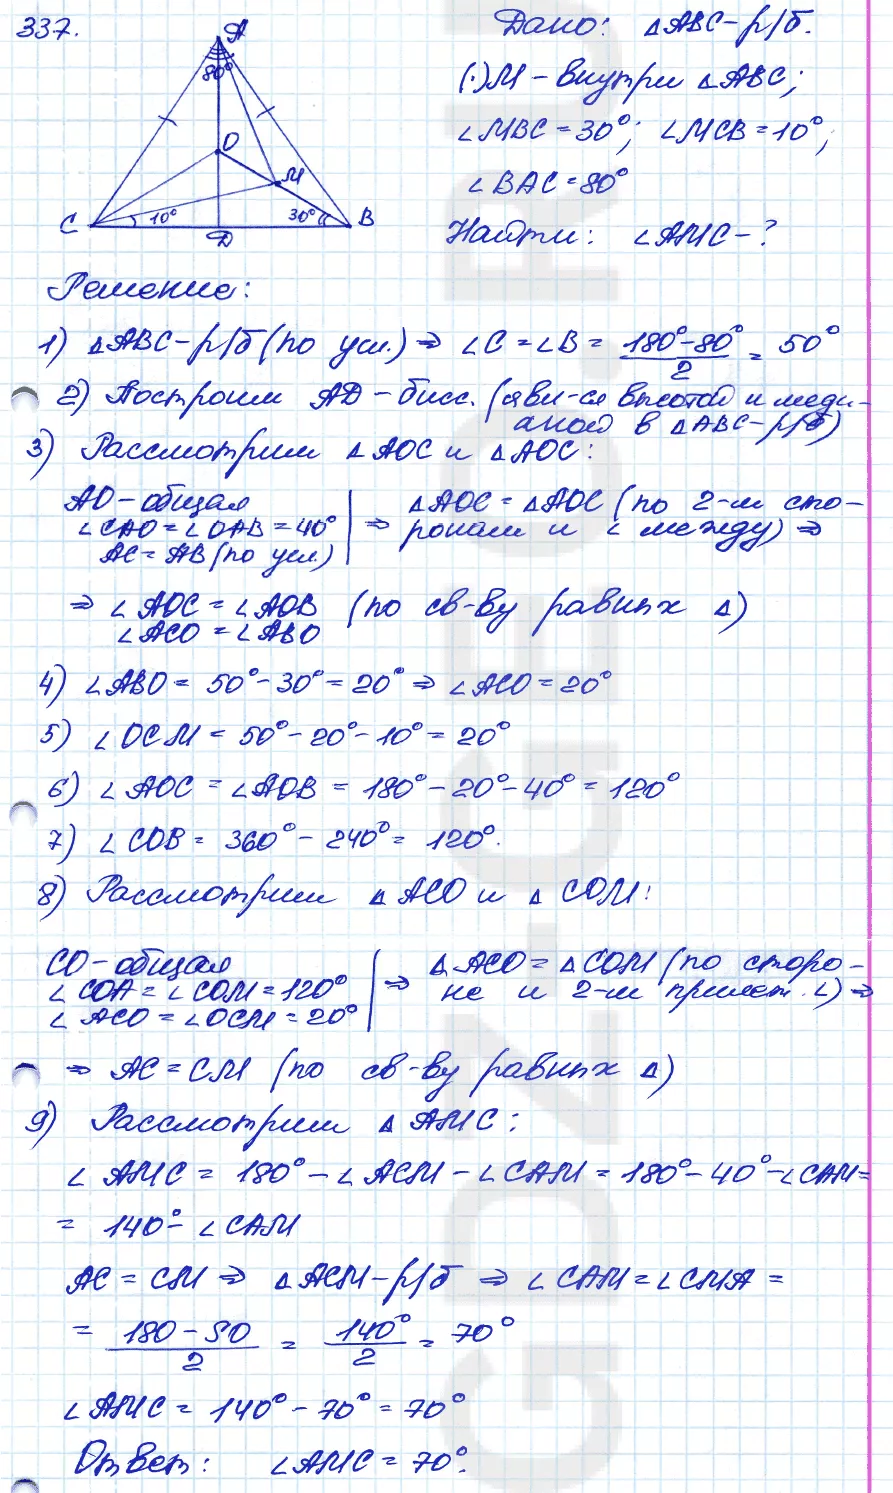 337.
A
80°
O
M
C
10°
30°
B
D
Дано: △ABC-р/б.
(·)M - внутри △ABC;
∠MBC = 30°; ∠MCB = 10°;
∠BAC = 80°
Найти: ∠AMC - ?
Решение:
1) △ABC - р/б (по усл.) ⇒ ∠C = ∠B = (180°-80°)/2 = 50°
2) Построим AD - бисс. (явл-ся высотой и меди-
аной в △ABC-р/б)
3) Рассмотрим △AOC и △AOC:
AO - общая
∠CAO = ∠OAB = 40°
AC = AB (по усл.)
⇒ △AOC = △AOC (по 2-м сто-
ронам и ∠ между) ⇒
⇒ ∠AOC = ∠AOB (по св-ву равных △)
∠ACO = ∠ABO
4) ∠ABO = 50° - 30° = 20° ⇒ ∠ACO = 20°
5) ∠OCM = 50° - 20° - 10° = 20°
6) ∠AOC = ∠AOB = 180° - 20° - 40° = 120°
7) ∠COB = 360° - 240° = 120°.
8) Рассмотрим △ACO и △COM:
CO - общая
∠COA = ∠COM = 120°
∠ACO = ∠OCM = 20°
⇒ △ACO = △COM (по сторо-
не и 2-м прилеж. ∠) ⇒
⇒ AC = CM (по св-ву равных △)
9) Рассмотрим △AMC:
∠AMC = 180° - ∠ACM - ∠CAM = 180° - 40° - ∠CAM =
= 140° - ∠CAM
AC = CM ⇒ △ACM - р/б ⇒ ∠CAM = ∠CMA =
= (180 - 50)/2 = 140°/2 = 70°
∠AMC = 140° - 70° = 70°
Ответ: ∠AMC = 70°.
GDZ-GEO.RU